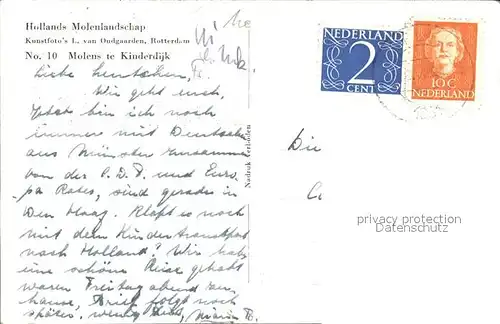 Hollands Molenlandschap
Kunstfoto's L. van Oudgaarden, Rotterdam
No. 10 Molens te Kinderdijk
NEDERLAND
2
CENT
10 C
NEDERLAND
Liebe
Wir geht euch,
Jetzt bin ich noch
immer mit Deutschen
aus Münster zusammen
von der S.P.D. und Euro-
pa Rates, sind gerade in
Den Haag. Klapt es noch
mit dem Kindertransport
nach Holland? Wir haben
eine schöne Reise gehabt
waren Freitag abend zu
hause, Brief folgt noch
später.
Nadruk verboden
Die
privacy protection
DatenSchutz